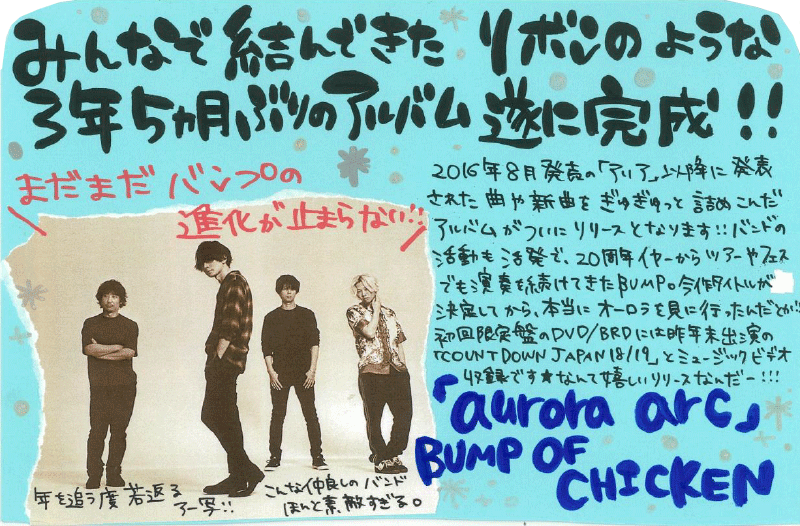 みんなで結んできた リボンのような
3年5ヵ月ぶりのアルバム 遂に完成!!
まだまだ バンプの
進化が止まらない!!
2016年8月発売の「アリア」以降に発表
された曲や新曲をぎゅぎゅっと詰めこんだ
アルバムがついにリリースとなります!!バンドの
活動も活発で、20周年イヤーからツアーやフェス
でも演奏を続けてきたBUMP。今作タイトルが
決定してから、本当にオーロラを見に行ったんだとか!!
初回限定盤のDVD/BRDには昨年末出演の
「COUNTDOWN JAPAN 18/19」とミュージックビデオ
収録です★なんて嬉しいリリースなんだー!!!
「aurora arc」
BUMP OF
CHICKEN
年を追う度 若返る
アー写!!
こんな仲良しのバンド
ほんと素敵すぎる。